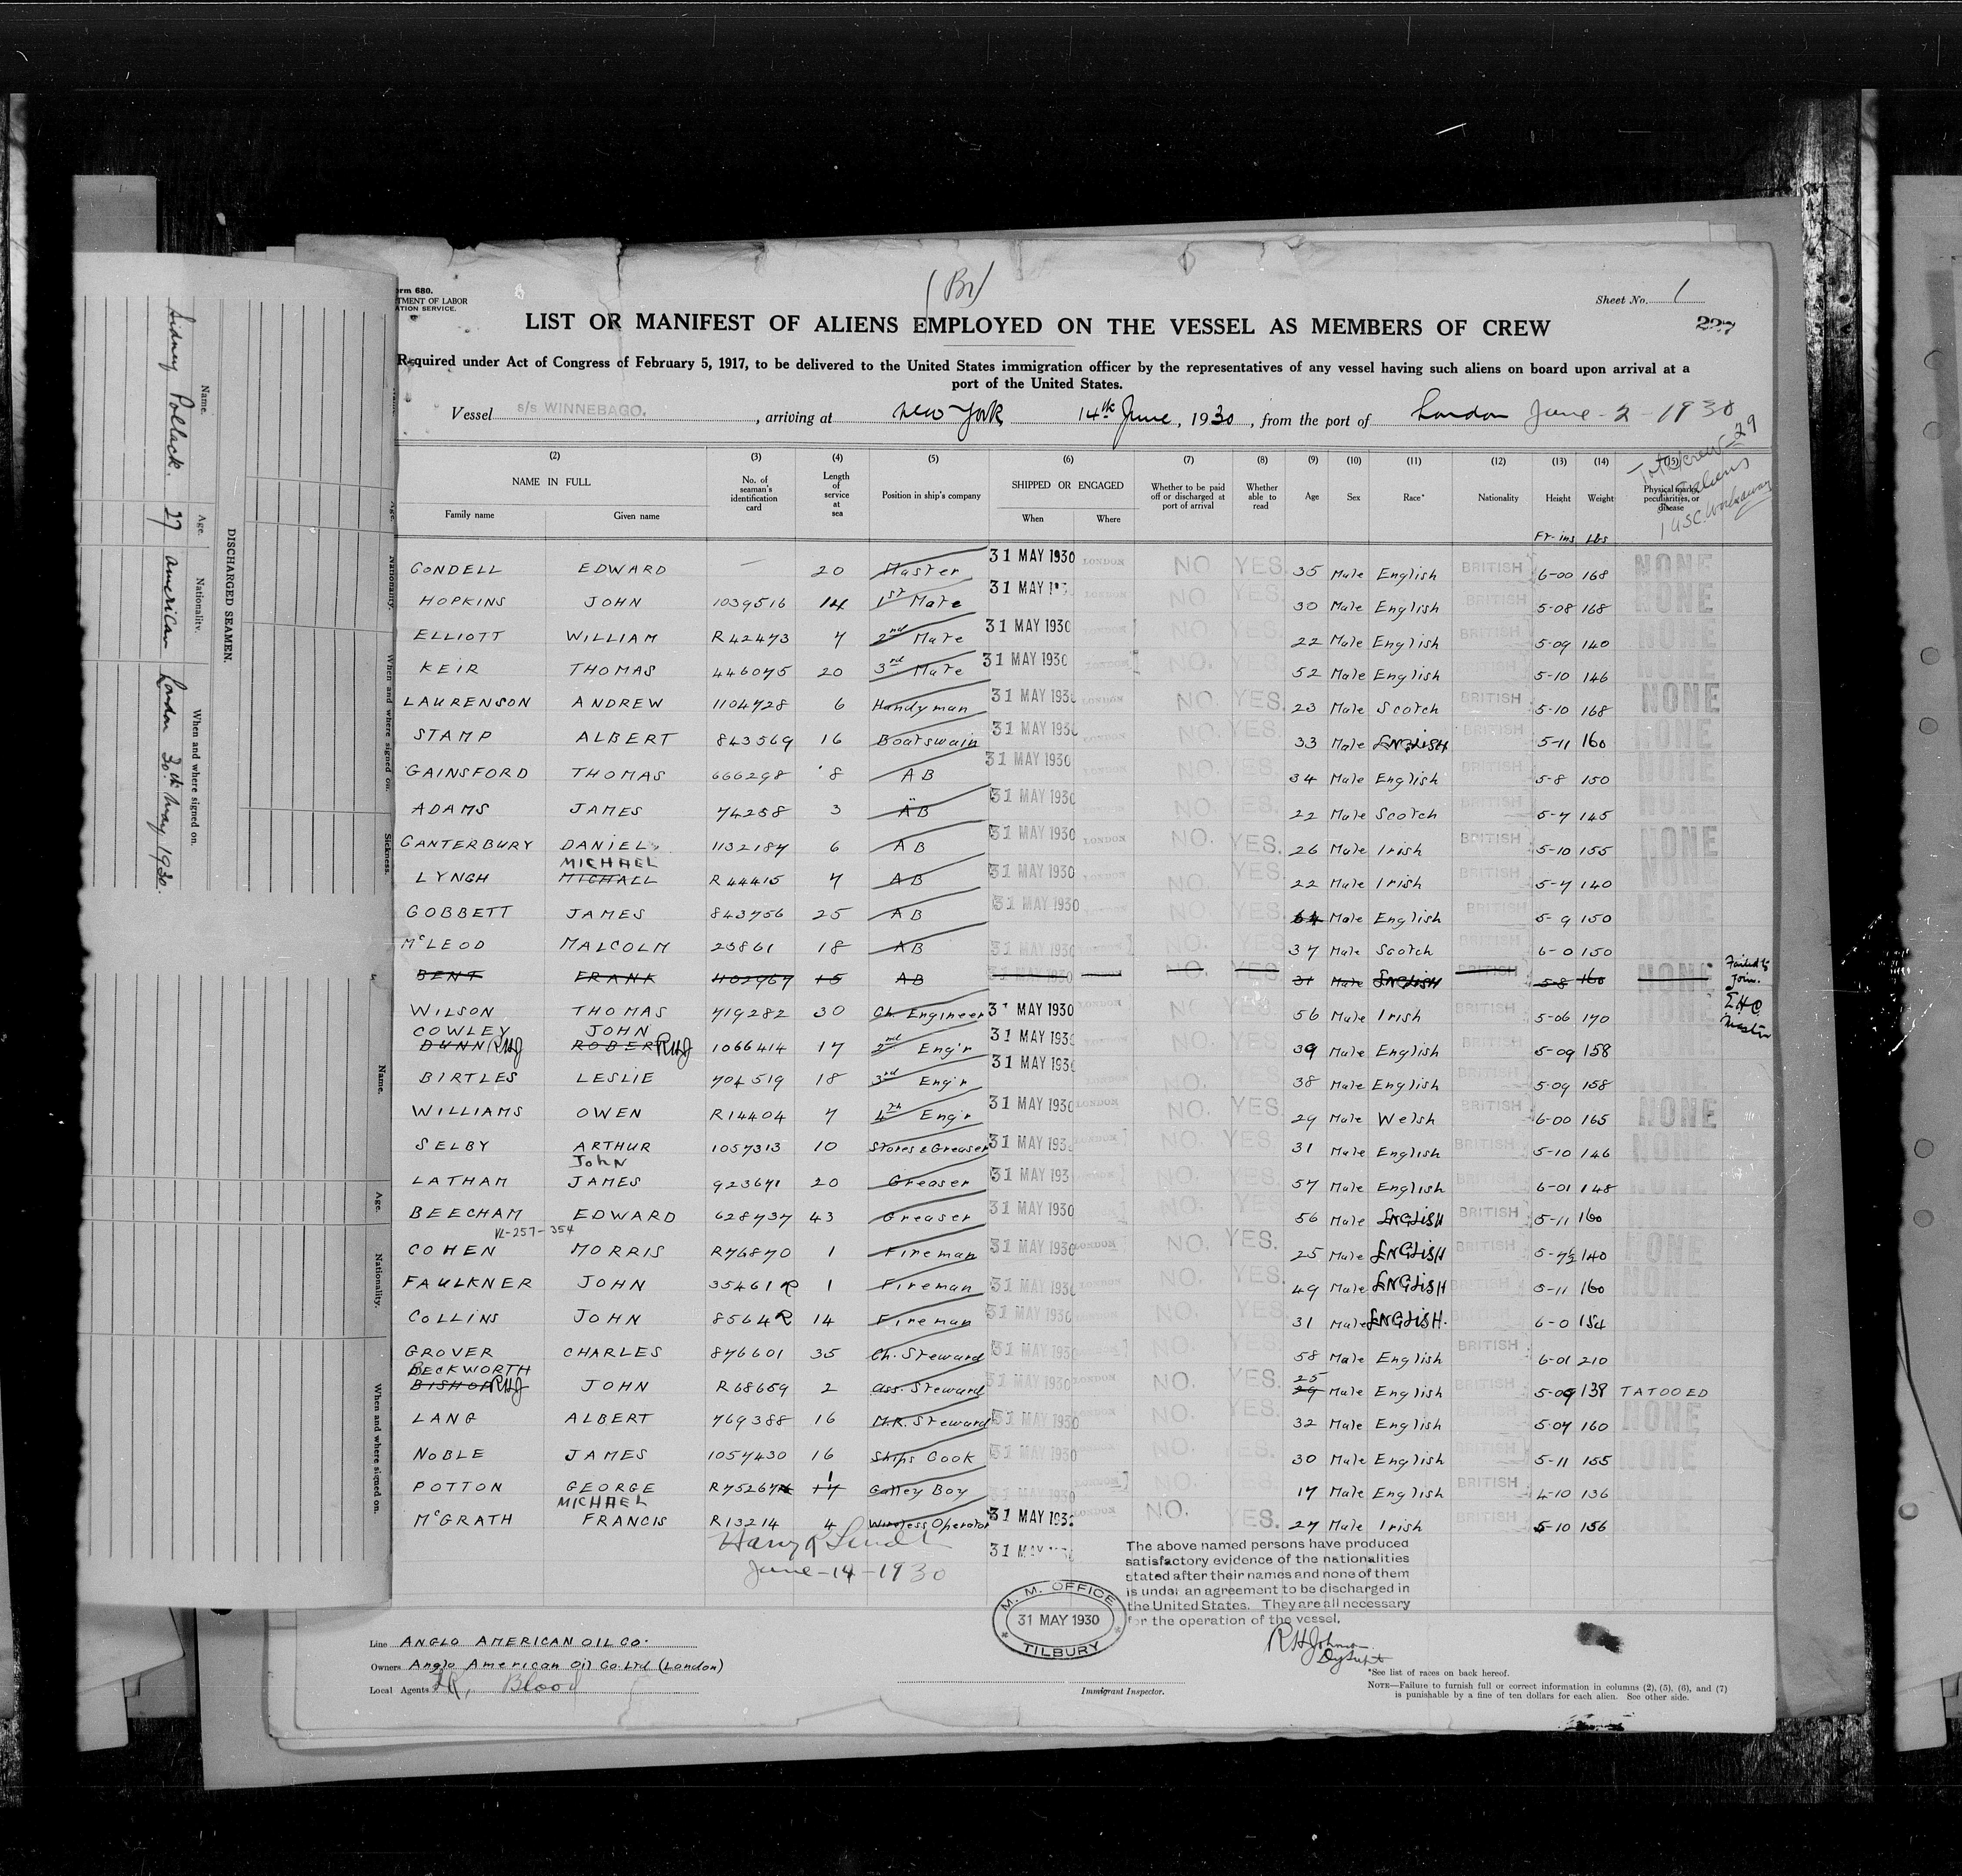 (Br)
Form 680.
TMENT OF LABOR
ATION SERVICE.
Sheet No. 1
227
LIST OR MANIFEST OF ALIENS EMPLOYED ON THE VESSEL AS MEMBERS OF CREW
Required under Act of Congress of February 5, 1917, to be delivered to the United States immigration officer by the representatives of any vessel having such aliens on board upon arrival at a
port of the United States.
Vessel s/s WINNEBAGO. , arriving at New York 14th June, 1930 , from the port of London June-2-1930
(2) (3) (4) (5) (6) (7) (8) (9) (10) (11) (12) (13) (14) (15)
NAME IN FULL No. of seaman's identification card Length of service at sea Position in ship's company SHIPPED OR ENGAGED Whether to be paid off or discharged at port of arrival Whether able to read Age Sex Race* Nationality Height Weight Physical marks, peculiarities, or disease
Family name Given name When Where
Ft-ins Lbs
GONDELL EDWARD — 20 Master 31 MAY 1930 LONDON NO YES. 35 Male English BRITISH 6-00 168 NONE
HOPKINS JOHN 1039516 14 1st Mate 31 MAY LONDON NO. YES. 30 Male English BRITISH 5-08 168 NONE
ELLIOTT WILLIAM R42473 7 2nd Mate 31 MAY 1930 NO YES 22 Male English BRITISH 5-09 140 NONE
KEIR THOMAS 446075 20 3rd Mate 31 MAY 1930 LONDON NO. YES. 52 Male English BRITISH 5-10 146 NONE
LAURENSON ANDREW 1104728 6 Handyman 31 MAY 193 LONDON NO YES. 23 Male Scotch BRITISH 5-10 168 NONE
STAMP ALBERT 843569 16 Boatswain 31 MAY 193 LONDON NO. YES. 33 Male ENGLISH BRITISH 5-11 160 NONE
GAINSFORD THOMAS 666298 8 AB 31 MAY 1930 LONDON NO. YES. 34 Male English BRITISH 5-8 150 NONE
ADAMS JAMES 74258 3 AB 31 MAY 1930 NO. YES. 22 Male Scotch BRITISH 5-7 145 NONE
CANTERBURY DANIEL 1132187 6 AB 31 MAY 1930 LONDON NO. YES. 26 Male Irish BRITISH 5-10 155 NONE
MICHAEL
LYNGH MICHALL R44415 7 AB 31 MAY 1930 LONDON NO. YES. 22 Male Irish BRITISH 5-7 140 NONE
GOBBETT JAMES 843756 25 AB 31 MAY 1930 NO YES 64 Male English BRITISH 5-9 150
McLEOD MALCOLM 23861 18 AB 31 MAY 1930 NO YES 37 Male Scotch BRITISH 6-0 150
BENT FRANK 1102967 15 AB 31 MAY 1930 NO. YES 31 Male ENGLISH BRITISH 5-8 160 NONE Failed to join.
WILSON THOMAS 719282 30 Ch. Engineer 31 MAY 1930 LONDON NO YES 56 Male Irish BRITISH 5-06 170 Master
COWLEY JOHN
DUNN RHJ ROBER RHJ 1066414 17 2nd Eng'r 31 MAY 193 NO YES 39 Male English BRITISH 5-09 158
BIRTLES LESLIE 704519 18 3rd Eng'r 31 MAY 193 NO. YES. 38 Male English BRITISH 5-09 158
WILLIAMS OWEN R14404 7 4th Eng'r 31 MAY 1930 LONDON NO. YES. 29 Male Welsh BRITISH 6-00 165 NONE
SELBY ARTHUR 1057313 10 Stores & Greaser 31 MAY 193 LONDON NO. YES. 31 Male English BRITISH 5-10 146 NONE
JOHN
LATHAM JAMES 923671 20 Greaser 31 MAY 193 NO. YES. 57 Male English BRITISH 6-01 148
BEECHAM EDWARD 628737 43 Greaser 31 MAY 1930 NO. YES. 56 Male ENGLISH BRITISH 5-11 160
VL-257-354
COHEN MORRIS R76870 1 Fireman 31 MAY 1930 LONDON NO. YES. 25 Male ENGLISH BRITISH 5-7½ 140 NONE
FAULKNER JOHN 35461R 1 Fireman 31 MAY 193 LONDON NO. YES. 49 Male ENGLISH BRITISH 5-11 160 NONE
COLLINS JOHN 8564R 14 Fireman 31 MAY 1930 NO YES 31 Male ENGLISH. BRITISH 6-0 154
GROVER CHARLES 876601 35 Ch. Steward 31 MAY 193 NO. YES. 58 Male English BRITISH 6-01 210
BECKWORTH 25
BISHOP RHJ JOHN R68659 2 Ass. Steward 31 MAY 1930 LONDON NO. YES. 29 Male English BRITISH 5-09 138 TATOOED
LANG ALBERT 769388 16 M.R. Steward 31 MAY 1930 NO. YES. 32 Male English BRITISH 5-07 160 NONE
NOBLE JAMES 1057430 16 Ships Cook 31 MAY 1930 NO. YES. 30 Male English BRITISH 5-11 155 NONE
1
POTTON GEORGE R75267 17 Galley Boy 31 MAY 1930 NO. 17 Male English BRITISH 4-10 136 NONE
MICHAEL
McGRATH FRANCIS R13214 4 Wireless Operator 31 MAY 193 LONDON NO. YES. 27 Male Irish BRITISH 5-10 156
June-14-1930
31 MAY
The above named persons have produced
satisfactory evidence of the nationalities
stated after their names and none of them
is under an agreement to be discharged in
the United States. They are all necessary
for the operation of the vessel.
M. M. OFFICE
31 MAY 1930
TILBURY
RHJohnson
Line ANGLO AMERICAN OIL CO.
Owners Anglo American Oil Co. Ltd (London)
Local Agents Blood
Immigrant Inspector.
*See list of races on back hereof.
NOTE—Failure to furnish full or correct information in columns (2), (5), (6), and (7)
is punishable by a fine of ten dollars for each alien. See other side.
DISCHARGED SEAMEN.
Name. Age. Nationality. When and where signed on.
Sidney Pollack. 27 american London 30th May 1930.
Age. Nationality. When and where signed on. Sickness.
Name. Age. Nationality. When and where signed on.